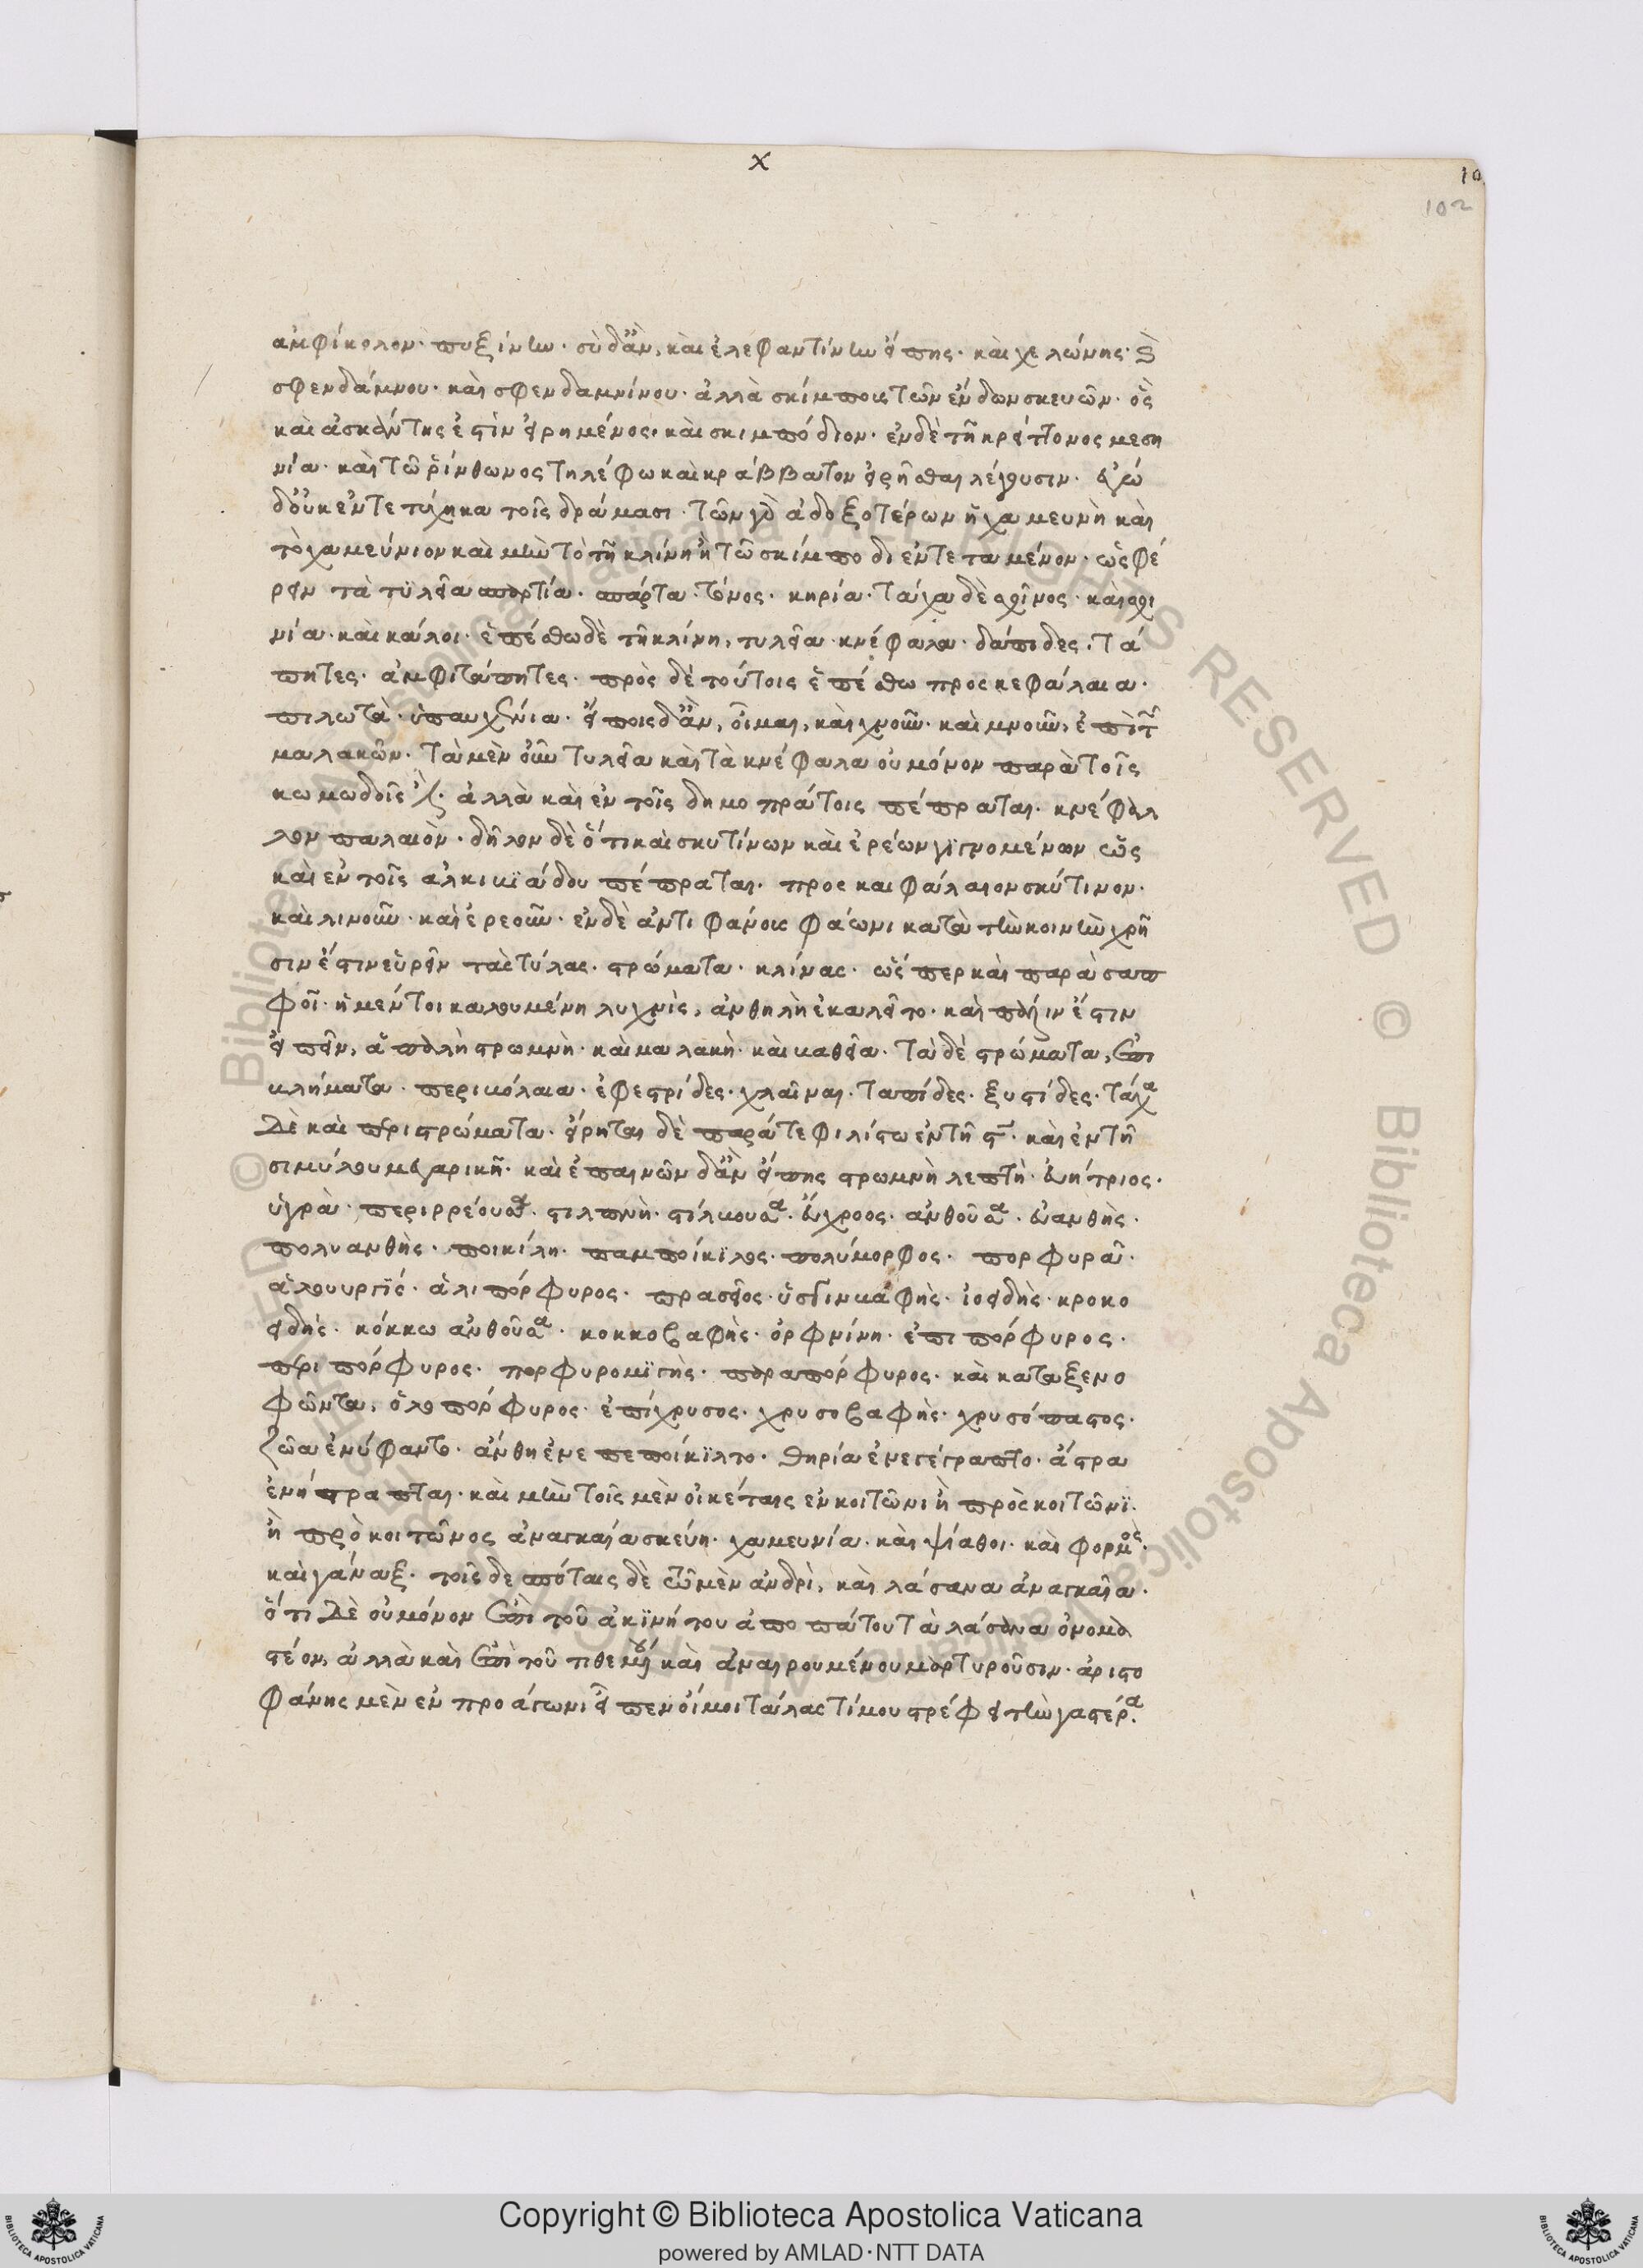 x
10
102
ἀμφίκολον· πυξίνην· σὺ δ' ἂν, καὶ ἐλεφαντίνην εἴποις· καὶ χελώνης· καὶ
σφενδάμνου· καὶ σφενδαμνίνου· ἀλλὰ σκίμπους τῶν ἔνδων σκευῶν· ὃς
καὶ ἀσκάντης ἐστὶν εἰρημένος· καὶ σκιμπόδιον· ἐν δὲ τῆ κρείττονος μεση
νία· καὶ τῶ ῥίνθωνος τηλέφω καὶ κράββατον εἰρῆσθαι λέγουσιν· ἐγὼ
δ' οὐκ ἐντετύχηκα τοῖς δράμασι· τῶν γὰρ ἀδοξοτέρων ἡ χαμευνὴ καὶ
τὸ χαμεύνιον καὶ μὴν τὸ τῆ κλίνη ἢ τῶ σκίμποδι ἐντεταμένον· ὡς φέ
ρειν τὰ τϋλεῖα σπαρτία· σπάρτα· τόνος· κηρία· τάχα δὲ σχῖνος· καὶ σχι
νία· καὶ κάλοι· ἐπέσθω δὲ τῆ κλίνη, τυλεῖα· κνέφαλα· δάπιδες· τά
πητες· ἀμφιτάπητες· πρὸς δὲ τούτοις ἑπέσθω προσκεφάλαια·
πιλωτὰ· ὑπαυχένια· εἴποις δ' ἂν, οἶμαι, καὶ χνοῦν· καὶ μνοῦν, ἐπὶ τῶν
μαλακῶν· τὰ μὲν οὖν τυλεῖα καὶ τὰ κνέφαλα οὐ μόνον παρὰ τοῖς
κωμωδοῖς ἐστὶν· ἀλλὰ καὶ ἐν τοῖς δημοπράτοις πέπραται· κνέφαλ
λον παλαιὸν· δῆλον δὲ ὅτι καὶ σκυτίνων καὶ ἐρέων γϊγνομένων ὡς
καὶ ἐν τοῖς ἀλκιβϊάδου πέπραται· προσκαιφάλαιον σκύτινον·
καὶ λινοῦν· καὶ ἐρεοῦν· ἐν δὲ ἀντιφάνους φάωνι κατὰ τὴν κοινὴν χρῆ
σιν ἔστιν εὑρεῖν τὰς τύλας· στρώματα· κλίνας· ὥσπερ καὶ παρὰ σαπ
φοῖ· ἡ μέντοι καλουμένη λυχνὶς, ἀνθηλὴ ἐκαλεῖτο· καὶ πάλιν ἔστιν
εἰπεῖν, ἁπαλὴ στρωμνὴ· καὶ μαλακὴ· καὶ βαθεῖα· τὰ δὲ στρώματα, ἐπι
βλήματα· περιβόλαια· ἐφεστρίδες· χλαῖναι· ταπίδες· ξυστίδες· τάχα
δὲ καὶ περιστρώματα· εἴρηται δὲ παρά τε φιλίστω ἐν τῆ στ· καὶ ἐν τῆ
σιμύλου μεγαρικῆ· καὶ ἐπαινῶν δ' ἂν εἴποις στρωμνὴ λεπτὴ· εὐήτριος·
ὑγρὰ· περιρρέουσα· στιλπνὴ· στίλβουσα· εὔχροος· ἀνθοῦσα· εὐανθὴς·
πολυανθὴς· ποικίλη· παμποίκϊλος· πολύμορφος· πορφυρᾶ·
ἁλουργϊς· ἁλιπόρφυρος· πρασεῖος· ὑσγινβαφὴς· ἰοειδὴς· κροκο
ειδὴς· κόκκω ἀνθοῦσα· κοκκοβαφὴς· ὀρφνίνη· ἐπιπόρφυρος·
περιπόρφυρος· πορφυρομϊγὴς· παραπόρφυρος· καὶ κατὰ ξενο
φῶντα, ὁλοπόρφυρος· ἐπίχρυσος· χρυσοβαφὴς· χρυσόπαστος·
ζῶα ἐνύφαντο· ἄνθη ἐνεπεποίκϊλτο· θηρία ἐνεγέγραπτο· ἄστρα
ἐνήστραπται· καὶ μὴν τοῖς μὲν οἰκέταις ἐν κοιτῶνι ἢ πρὸς κοιτῶνϊ·
ἢ πρὸ κοιτῶνος ἀναγκαία σκεύη· χαμευνία· καὶ ψίαθοι· καὶ φορμὸς·
καὶ γάναξ· τοῖς δεσπόταις δὲ σὺν μὲν ἀνδρὶ, καὶ λάσανα ἀναγκαῖα·
ὅτι δὲ οὐ μόνον ἐπὶ τοῦ ἀκϊνήτου ἀποπάτου τὰ λάσανα ὀνομα
στέον, ἀλλὰ καὶ ἐπὶ τοῦ τιθεμένου καὶ ἀναιρουμένου μαρτυροῦσιν· ἀριστο
φάνης μὲν ἐν προάγωνι εἶπεν οἴμοι τάλας τί μου στρέφει τὴν γαστέρα·
Copyright © Biblioteca Apostolica Vaticana
powered by AMLAD·NTT DATA